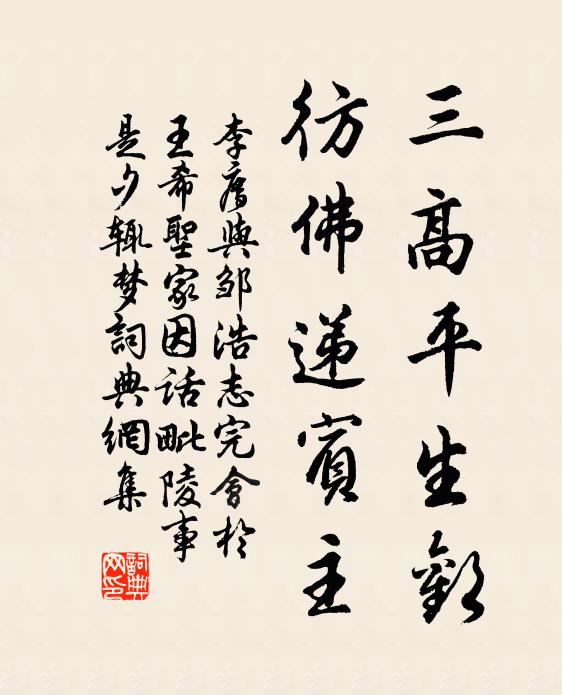 三高平生歡
彷佛遞賓主
李廌與鄒浩志完會於
王希聖家因話毗陵事
是夕輙梦詞典網集
詞典网印